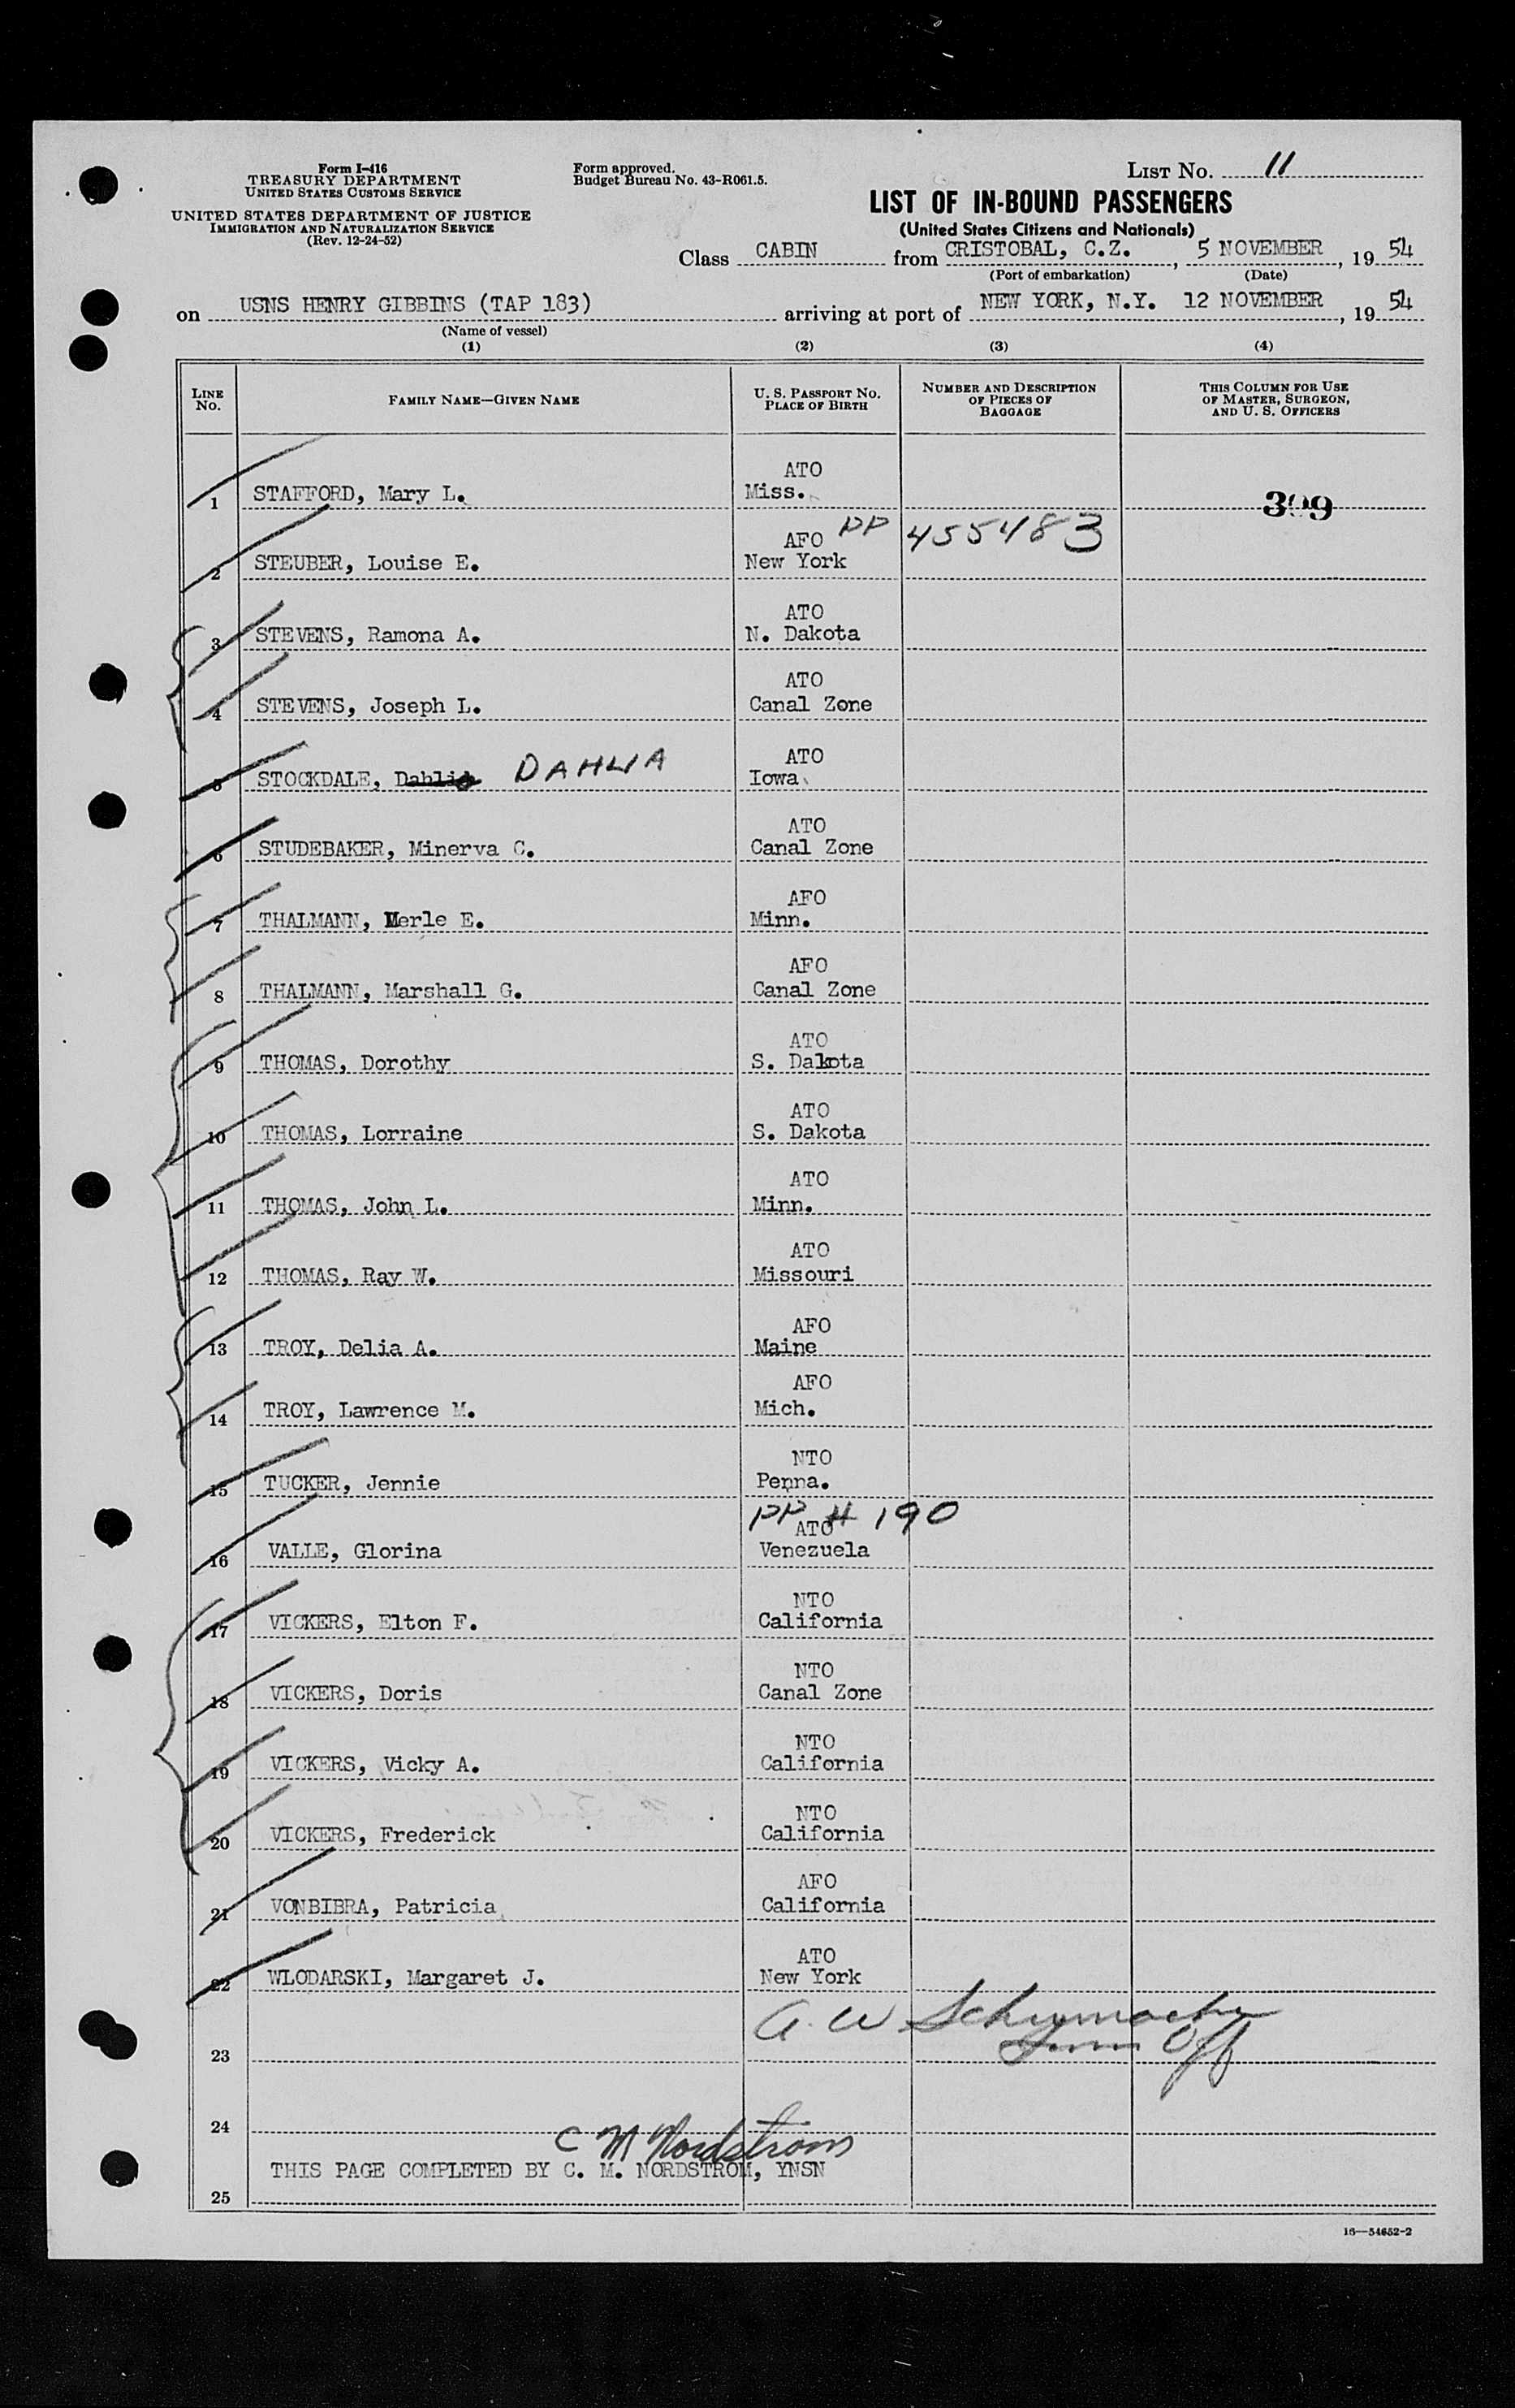 Form I-416
TREASURY DEPARTMENT
UNITED STATES CUSTOMS SERVICE
UNITED STATES DEPARTMENT OF JUSTICE
IMMIGRATION AND NATURALIZATION SERVICE
(Rev. 12-24-52)
Form approved.
Budget Bureau No. 43-R061.5.
LIST NO. 11
LIST OF IN-BOUND PASSENGERS
(United States Citizens and Nationals)
Class CABIN from CRISTOBAL, C.Z., 5 NOVEMBER, 19 54
(Port of embarkation) (Date)
on USNS HENRY GIBBINS (TAP 183) arriving at port of NEW YORK, N.Y. 12 NOVEMBER, 19 54
(Name of vessel)
(1) (2) (3) (4)
LINE NO.
FAMILY NAME—GIVEN NAME
U. S. PASSPORT NO.
PLACE OF BIRTH
NUMBER AND DESCRIPTION
OF PIECES OF
BAGGAGE
THIS COLUMN FOR USE
OF MASTER, SURGEON,
AND U. S. OFFICERS
ATO
1 STAFFORD, Mary L. Miss. 399
AFO PP 455483
2 STEUBER, Louise E. New York
ATO
3 STEVENS, Ramona A. N. Dakota
ATO
4 STEVENS, Joseph L. Canal Zone
ATO
5 STOCKDALE, Dahlia DAHLIA Iowa
ATO
6 STUDEBAKER, Minerva C. Canal Zone
AFO
7 THALMANN, Merle E. Minn.
AFO
8 THALMANN, Marshall G. Canal Zone
ATO
9 THOMAS, Dorothy S. Dakota
ATO
10 THOMAS, Lorraine S. Dakota
ATO
11 THOMAS, John L. Minn.
ATO
12 THOMAS, Ray W. Missouri
AFO
13 TROY, Delia A. Maine
AFO
14 TROY, Lawrence M. Mich.
NTO
15 TUCKER, Jennie Penna.
PP # 190
ATO
16 VALLE, Glorina Venezuela
NTO
17 VICKERS, Elton F. California
NTO
18 VICKERS, Doris Canal Zone
NTO
19 VICKERS, Vicky A. California
NTO
20 VICKERS, Frederick California
AFO
21 VONBIBRA, Patricia California
ATO
22 WLODARSKI, Margaret J. New York
A. W Schumacher
Imm Off
23
24
C M Nordstrom
THIS PAGE COMPLETED BY C. M. NORDSTROM, YNSN
25
16—54652-2